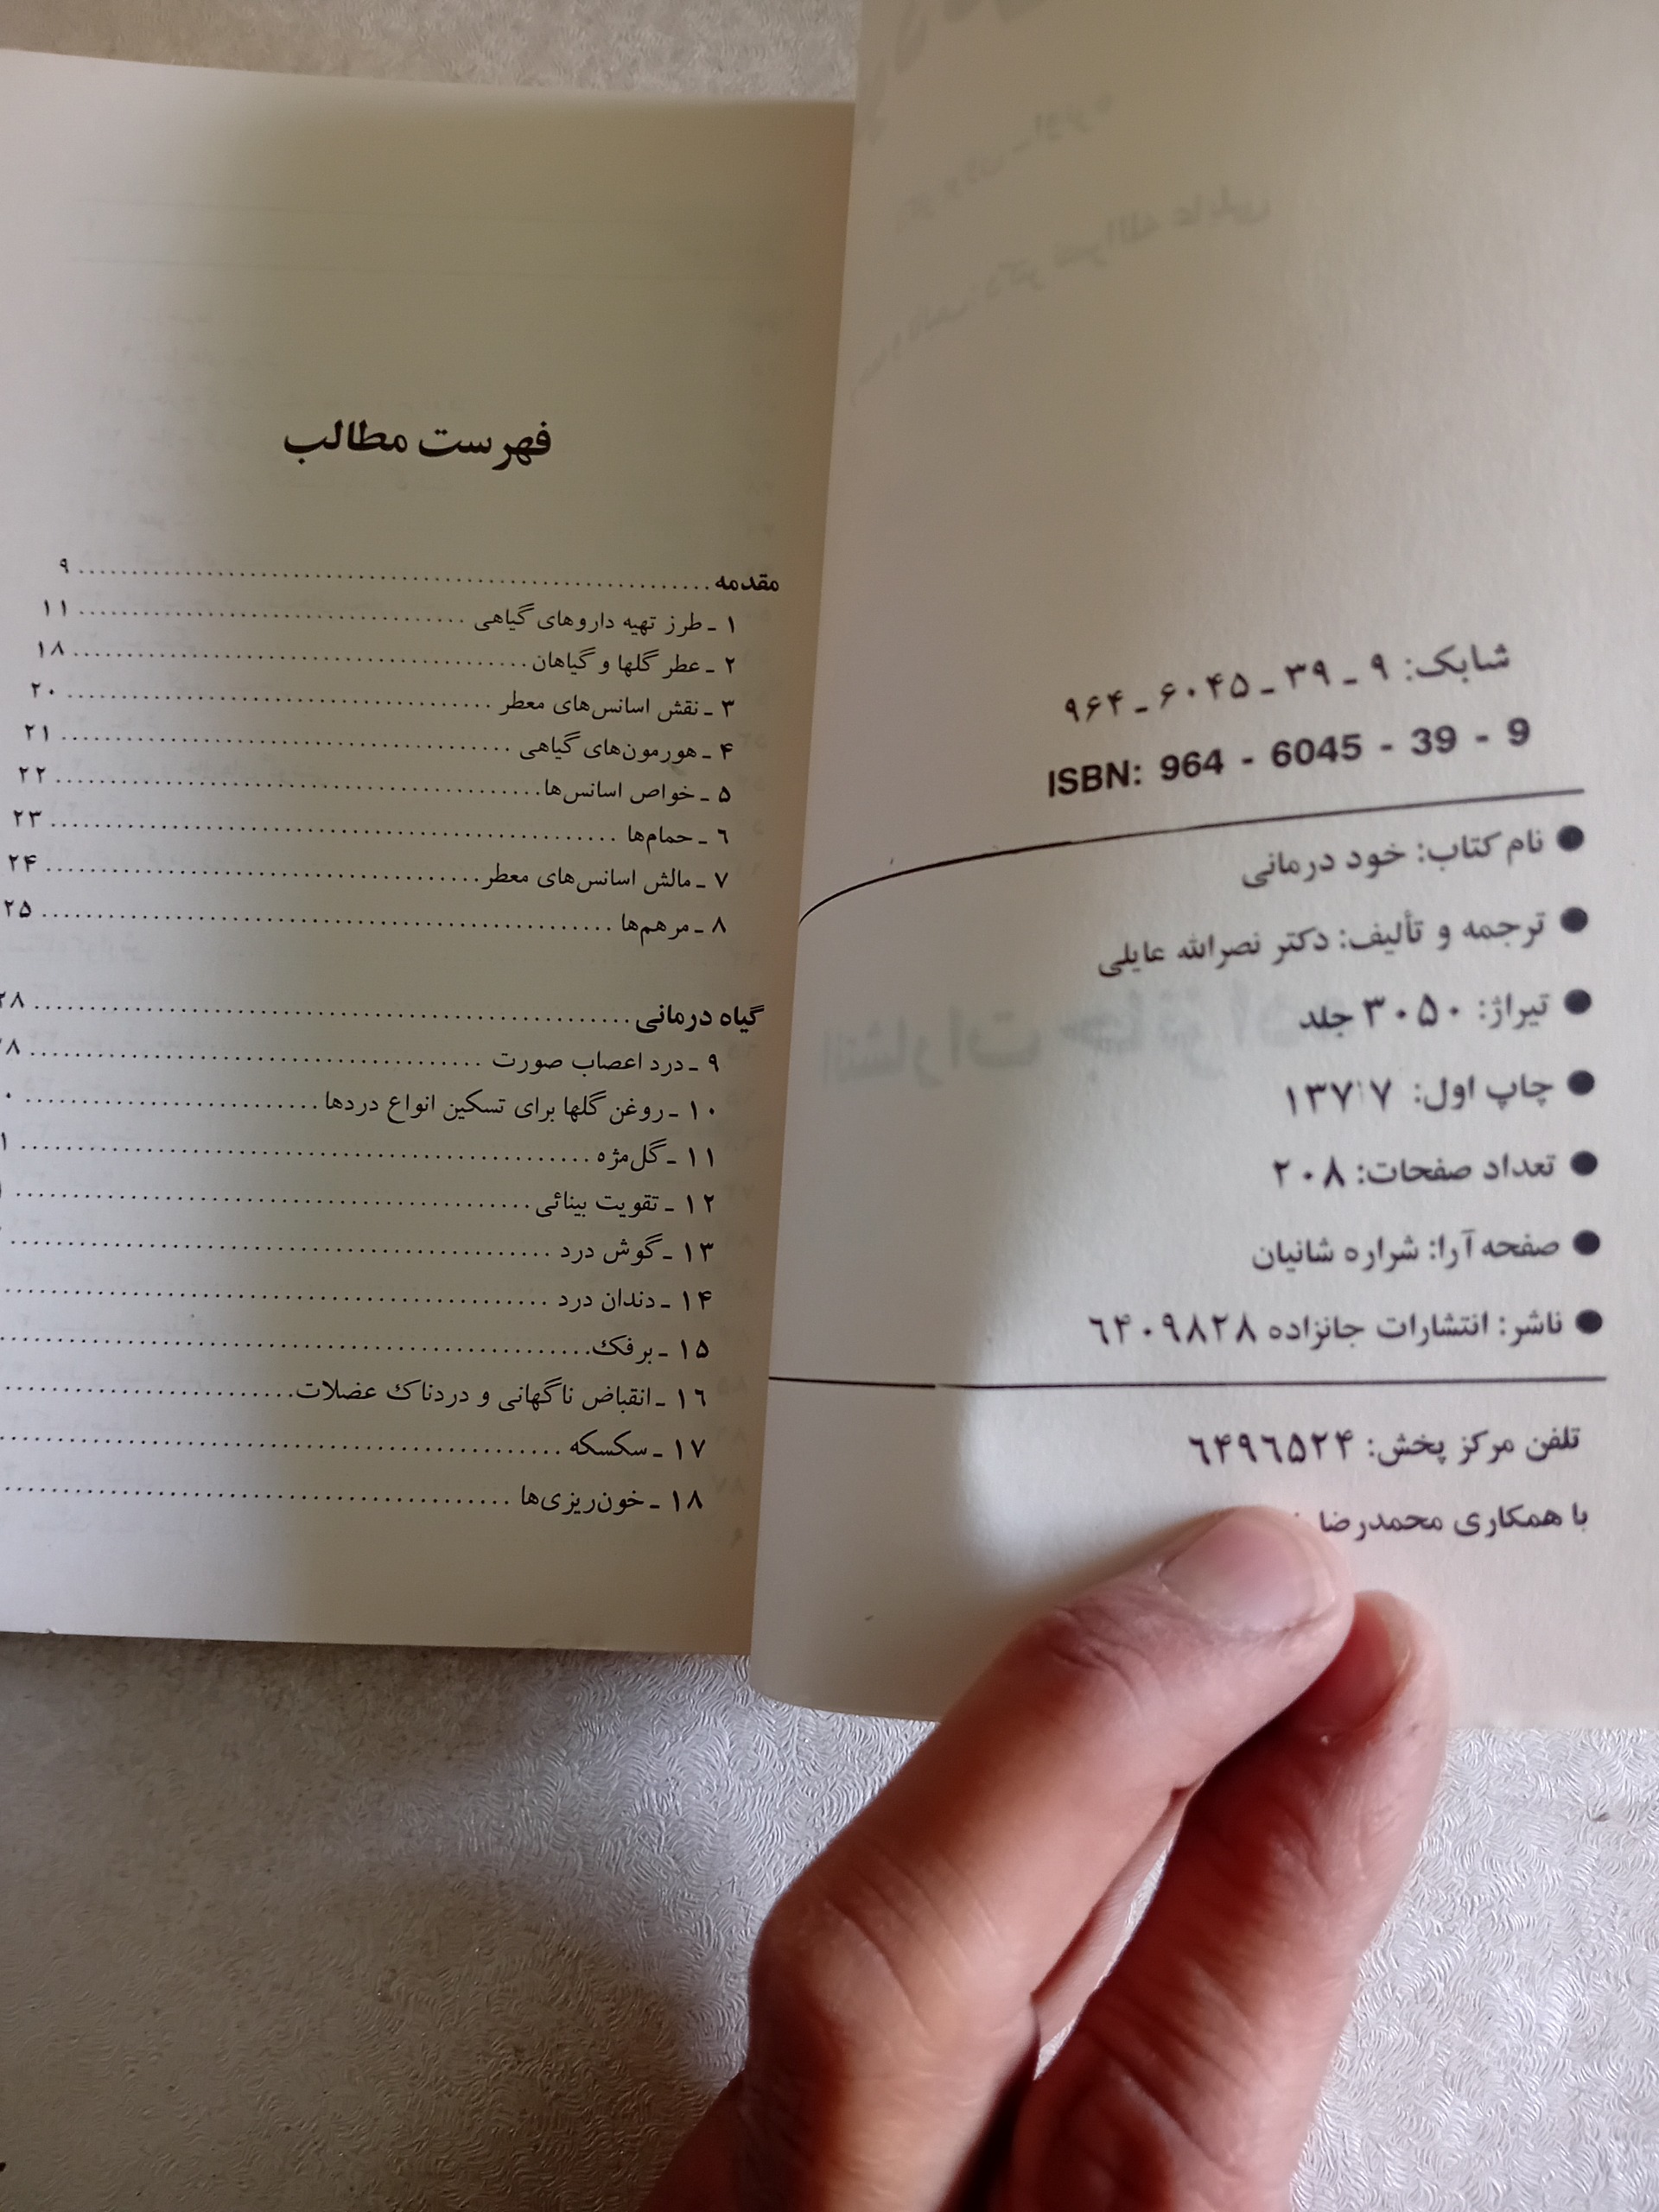 شابک: ۹ ـ ۳۹ ـ ۶۰۴۵ ـ ۹۶۴
ISBN: 964 - 6045 - 39 - 9
● نام کتاب: خود درمانی
● ترجمه و تألیف: دکتر نصرالله عایلی
● تیراژ: ۳۰۵۰ جلد
● چاپ اول: ۱۳۷۷
● تعداد صفحات: ۲۰۸
● صفحه آرا: شراره شانیان
● ناشر: انتشارات جانزاده ۶۴۰۹۸۲۸
تلفن مرکز پخش: ۶۴۹۶۵۲۴
با همکاری محمدرضا
فهرست مطالب
مقدمه ........ ۹
۱ ـ طرز تهیه داروهای گیاهی ........ ۱۱
۲ ـ عطر گلها و گیاهان ........ ۱۸
۳ ـ نقش اسانس‌های معطر ........ ۲۰
۴ ـ هورمون‌های گیاهی ........ ۲۱
۵ ـ خواص اسانس‌ها ........ ۲۲
۶ ـ حمام‌ها ........ ۲۳
۷ ـ مالش اسانس‌های معطر ........ ۲۴
۸ ـ مرهم‌ها ........ ۲۵
گیاه درمانی ........ ۲۸
۹ ـ درد اعصاب صورت ........
۱۰ ـ روغن گلها برای تسکین انواع دردها ........
۱۱ ـ گل‌مژه ........
۱۲ ـ تقویت بینائی ........
۱۳ ـ گوش درد ........
۱۴ ـ دندان درد ........
۱۵ ـ برفک ........
۱۶ ـ انقباض ناگهانی و دردناک عضلات ........
۱۷ ـ سکسکه ........
۱۸ ـ خون‌ریزی‌ها ........